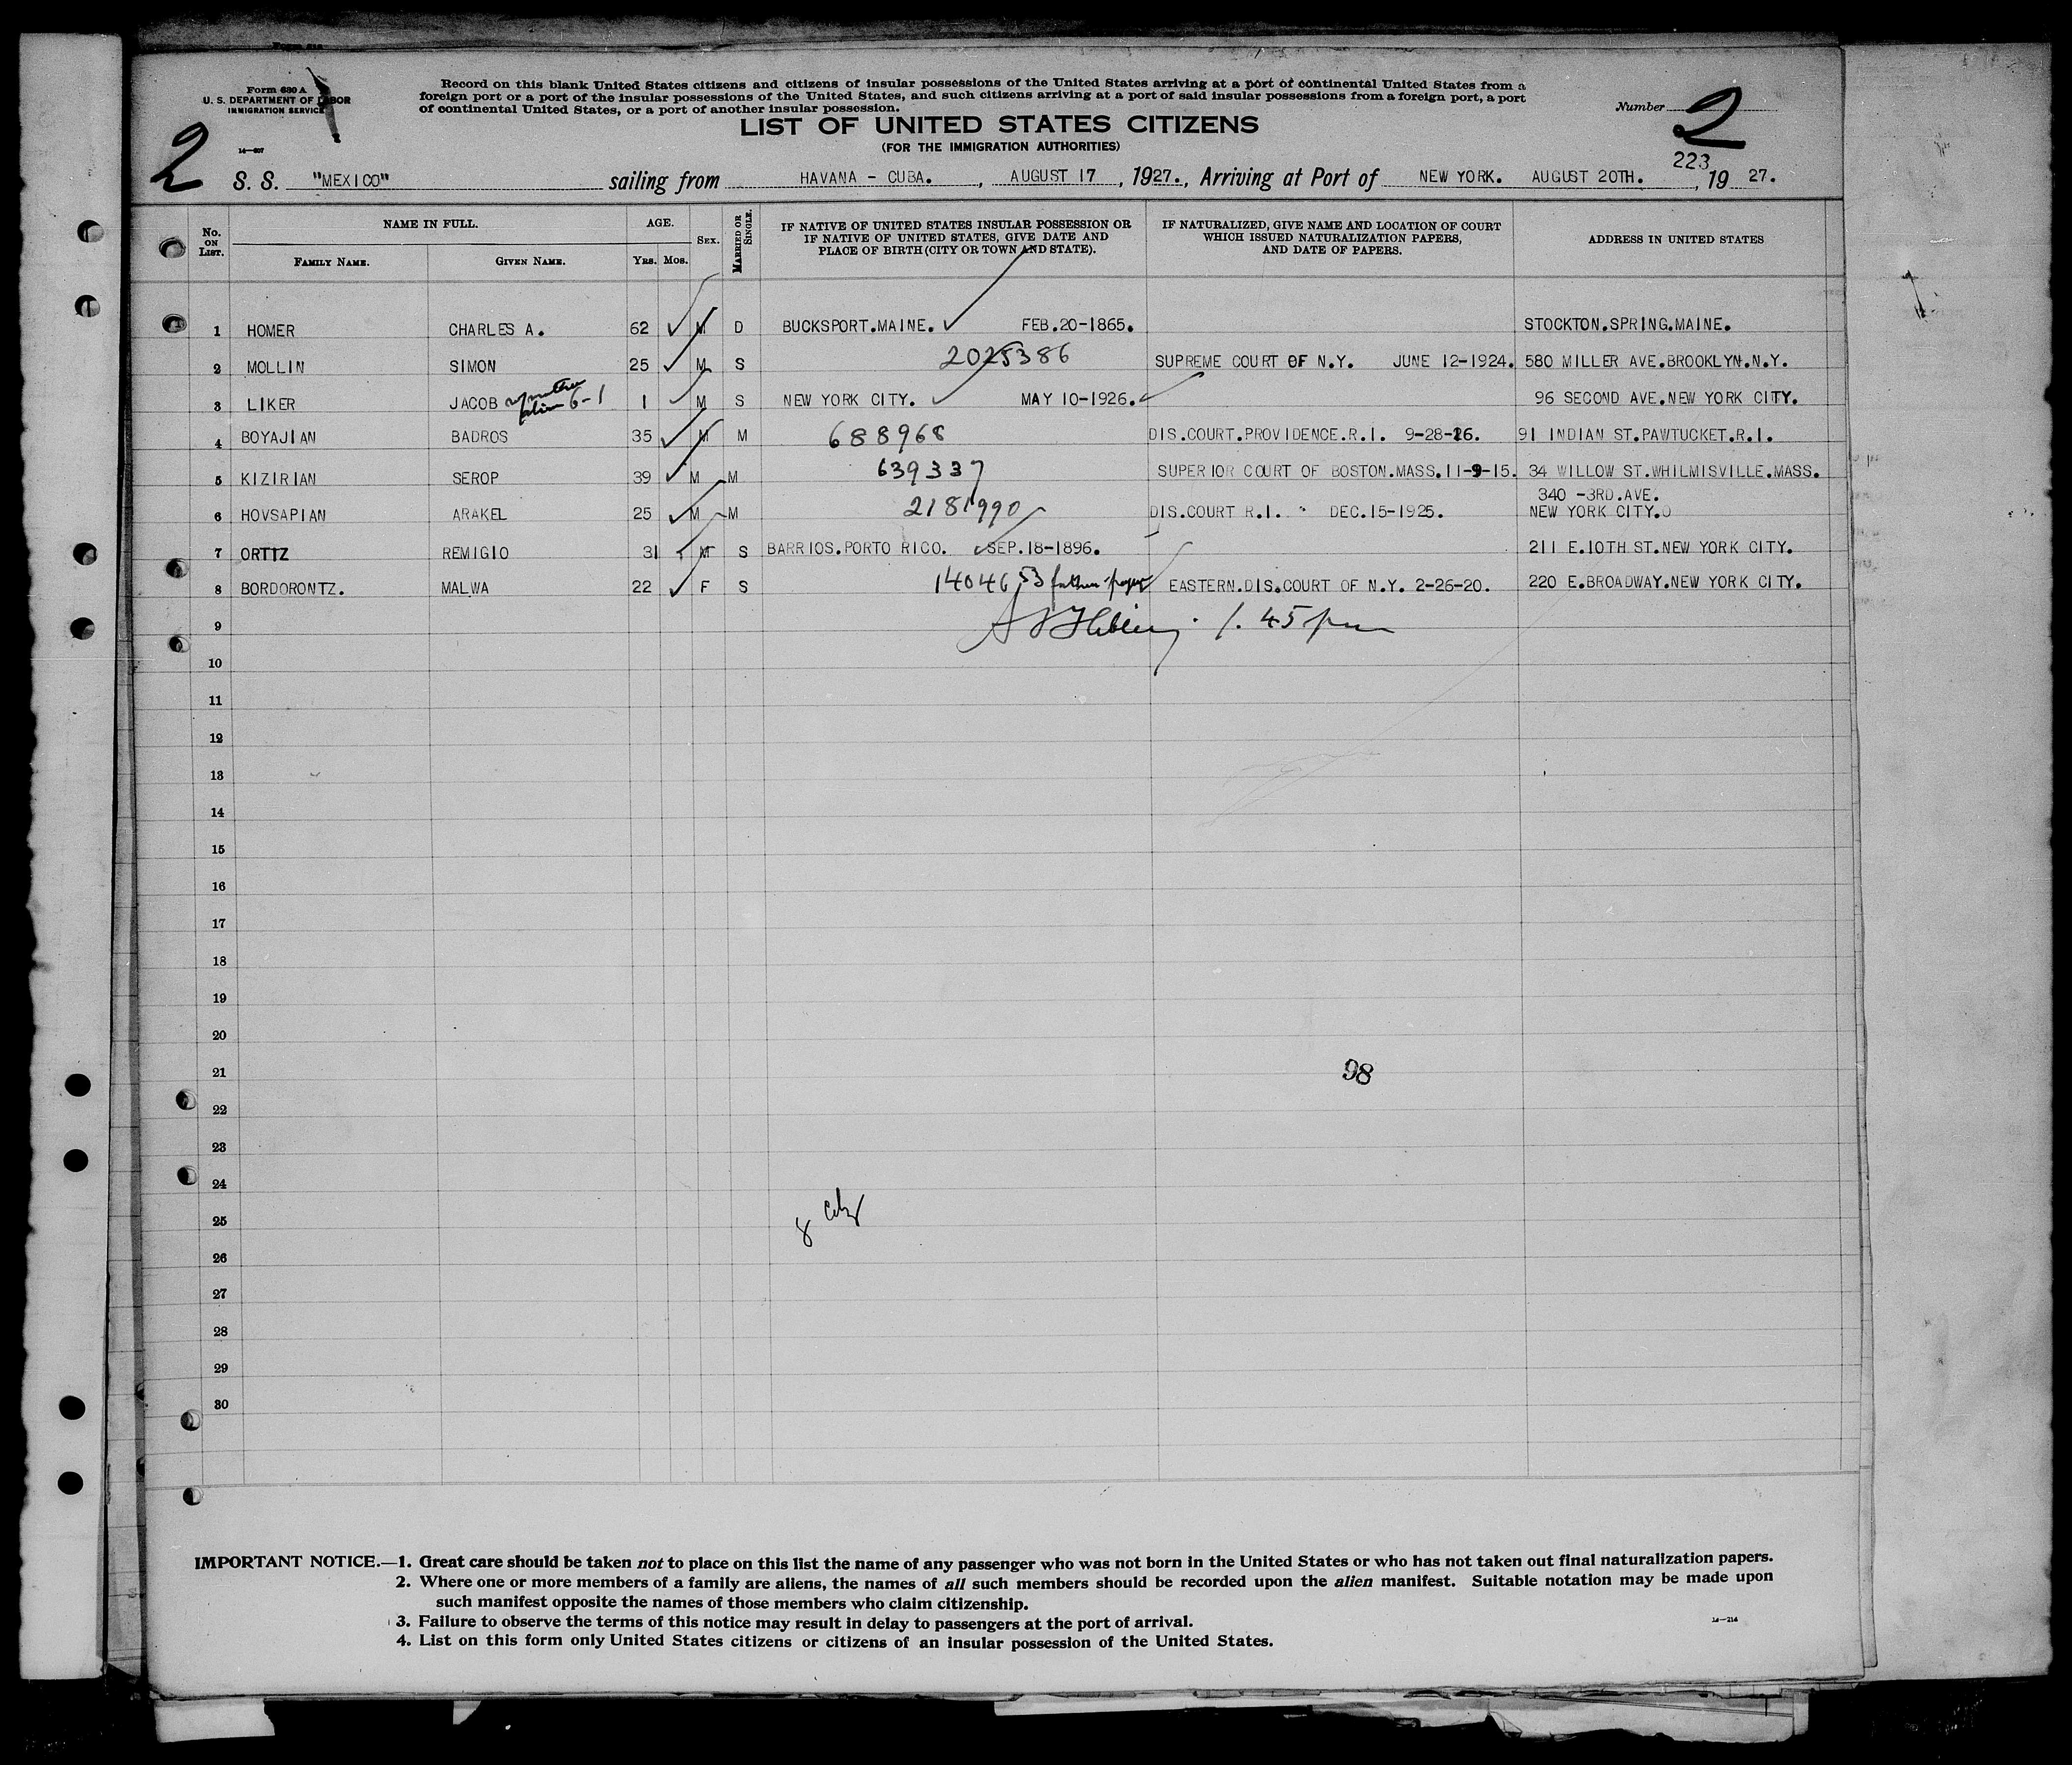 Form 630 A
U. S. DEPARTMENT OF LABOR
IMMIGRATION SERVICE
14—607
Record on this blank United States citizens and citizens of insular possessions of the United States arriving at a port of continental United States from a
foreign port or a port of the insular possessions of the United States, and such citizens arriving at a port of said insular possessions from a foreign port, a port
of continental United States, or a port of another insular possession.
Number 2
LIST OF UNITED STATES CITIZENS
(FOR THE IMMIGRATION AUTHORITIES)
223
2 S. S. "MEXICO" sailing from HAVANA - CUBA. , AUGUST 17 , 1927. , Arriving at Port of NEW YORK. AUGUST 20TH. , 19 27.
No. ON LIST. NAME IN FULL. FAMILY NAME. GIVEN NAME. AGE. YRS. MOS. SEX. MARRIED OR SINGLE. IF NATIVE OF UNITED STATES INSULAR POSSESSION OR IF NATIVE OF UNITED STATES, GIVE DATE AND PLACE OF BIRTH (CITY OR TOWN AND STATE). IF NATURALIZED, GIVE NAME AND LOCATION OF COURT WHICH ISSUED NATURALIZATION PAPERS, AND DATE OF PAPERS. ADDRESS IN UNITED STATES
1 HOMER CHARLES A. 62 M D BUCKSPORT.MAINE. FEB.20-1865. STOCKTON.SPRING.MAINE.
2 MOLLIN SIMON 25 M S 2025386 SUPREME COURT OF N.Y. JUNE 12-1924. 580 MILLER AVE.BROOKLYN.N.Y.
3 LIKER JACOB w/mother alien 6-1 1 M S NEW YORK CITY. MAY 10-1926. 96 SECOND AVE.NEW YORK CITY.
4 BOYAJIAN BADROS 35 M M 688968 DIS.COURT.PROVIDENCE.R.I. 9-28-16. 91 INDIAN ST.PAWTUCKET.R.I.
5 KIZIRIAN SEROP 39 M M 639337 SUPERIOR COURT OF BOSTON.MASS.11-9-15. 34 WILLOW ST.WHILMISVILLE.MASS.
340 -3RD.AVE.
6 HOVSAPIAN ARAKEL 25 M M 2181990 DIS.COURT R.I. DEC.15-1925. NEW YORK CITY.
7 ORTIZ REMIGIO 31 M S BARRIOS.PORTO RICO. SEP.18-1896. 211 E.10TH ST.NEW YORK CITY.
8 BORDORONTZ. MALWA 22 F S 1404653 father's papers EASTERN.DIS.COURT OF N.Y. 2-26-20. 220 E.BROADWAY.NEW YORK CITY.
9 1.45 pm
10
11
12
13
14
15
16
17
18
19
20
21 98
22
23
24
25 8
26
27
28
29
30
IMPORTANT NOTICE.—1. Great care should be taken not to place on this list the name of any passenger who was not born in the United States or who has not taken out final naturalization papers.
2. Where one or more members of a family are aliens, the names of all such members should be recorded upon the alien manifest. Suitable notation may be made upon
such manifest opposite the names of those members who claim citizenship.
3. Failure to observe the terms of this notice may result in delay to passengers at the port of arrival.
14—214
4. List on this form only United States citizens or citizens of an insular possession of the United States.